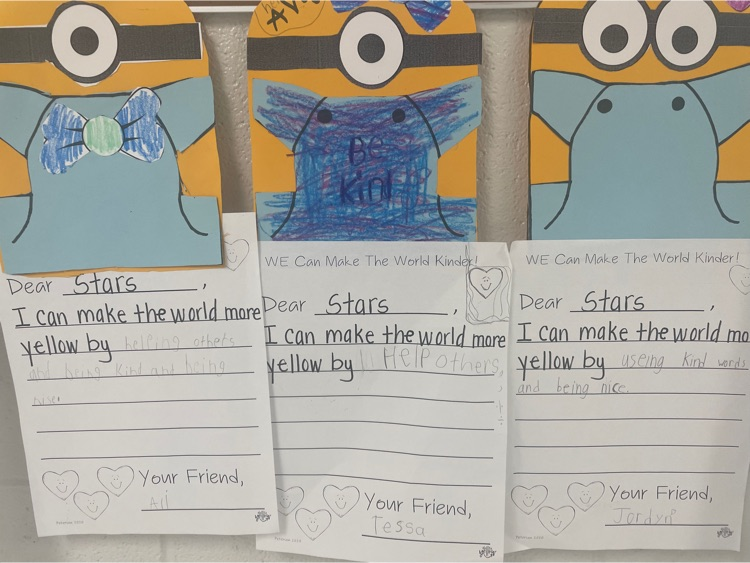 AV
Be
Kind
Dear Stars,
I can make the world more
yellow by helping others
and being kind and being
nise.
Your Friend,
Ari
WE Can Make The World Kinder!
Dear Stars,
I can make the world more
yellow by Help others,
Your Friend,
Tessa
WE Can Make The World Kinder!
Dear Stars,
I can make the world mo
yellow by useing kind words
and being nice.
Your Friend,
Jordyn